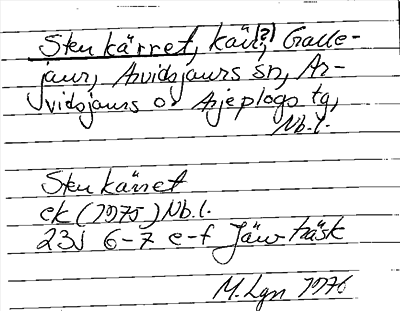 Stenkärret, kärr, (?) Galle-
jaur, Arvidsjaurs sn, Ar-
vidsjaurs o Arjeplogs tg,
Nb.l.
Stenkärret
ek (1975) Nb.l.
23J 6-7 e-f Järvträsk
M. Lgn 1976